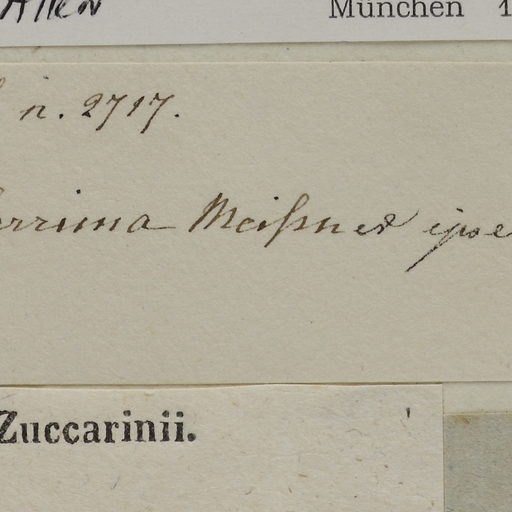 München 1
n. 2717.
errima Meißner ipse
Zuccarinii.